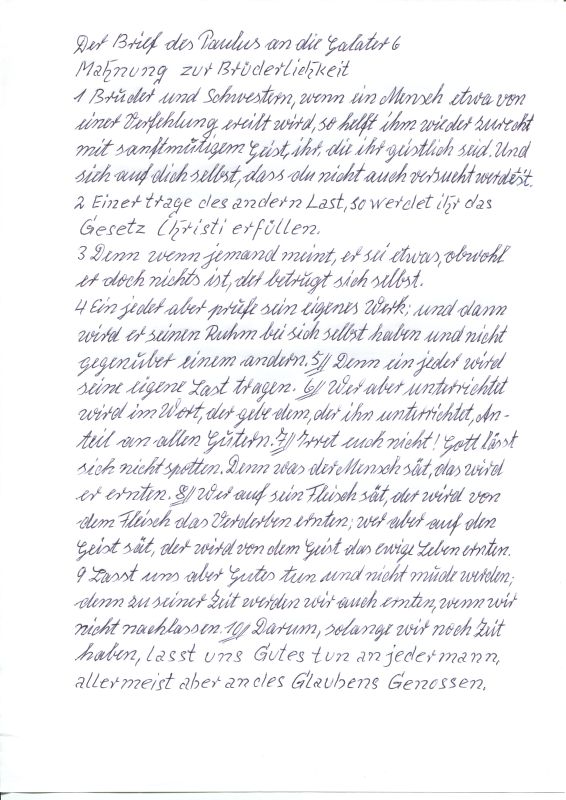 Der Brief des Paulus an die Galater 6
Mahnung zur Brüderlichkeit
1 Brüder und Schwestern, wenn ein Mensch etwa von
einer Verfehlung ereilt wird, so helft ihm wieder zurecht
mit sanftmütigem Geist, ihr, die ihr geistlich seid. Und
sieh auf dich selbst, dass du nicht auch versucht werdest.
2 Einer trage des andern Last, so werdet ihr das
Gesetz Christi erfüllen.
3 Denn wenn jemand meint, er sei etwas, obwohl
er doch nichts ist, der betrügt sich selbst.
4 Ein jeder aber prüfe sein eigenes Werk; und dann
wird er seinen Ruhm bei sich selbst haben und nicht
gegenüber einem andern. 5// Denn ein jeder wird
seine eigene Last tragen. 6// Wer aber unterrichtet
wird im Wort, der gebe dem, der ihn unterrichtet, An-
teil an allen Gütern. 7// Irret euch nicht! Gott lässt
sich nicht spotten. Denn was der Mensch sät, das wird
er ernten. 8// Wer auf sein Fleisch sät, der wird von
dem Fleisch das Verderben ernten; wer aber auf den
Geist sät, der wird von dem Geist das ewige Leben ernten.
9 Lasst uns aber Gutes tun und nicht müde werden;
denn zu seiner Zeit werden wir auch ernten, wenn wir
nicht nachlassen. 10// Darum, solange wir noch Zeit
haben, lasst uns Gutes tun an jedermann,
allermeist aber an des Glaubens Genossen.